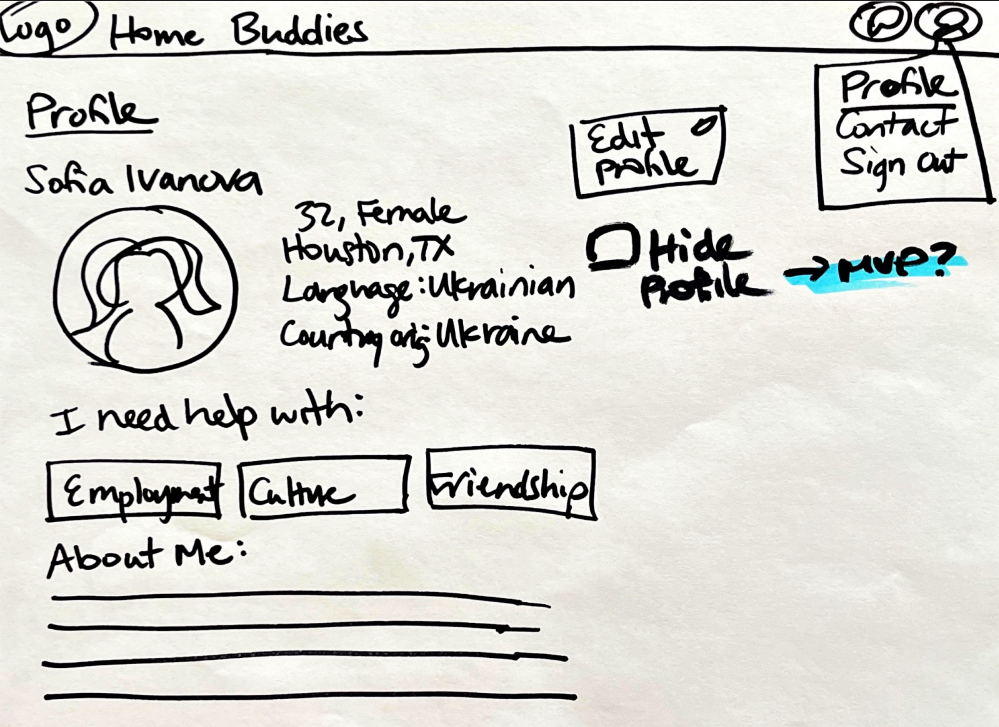 Logo Home Buddies
Profile
Contact
Sign Out
Profile
Edit
Profile
Sofia Ivanova
32, Female
Houston, TX
Language: Ukrainian
Country orig: Ukraine
Hide
Profile
→ MVP?
I need help with:
Employment Culture Friendship
About Me: